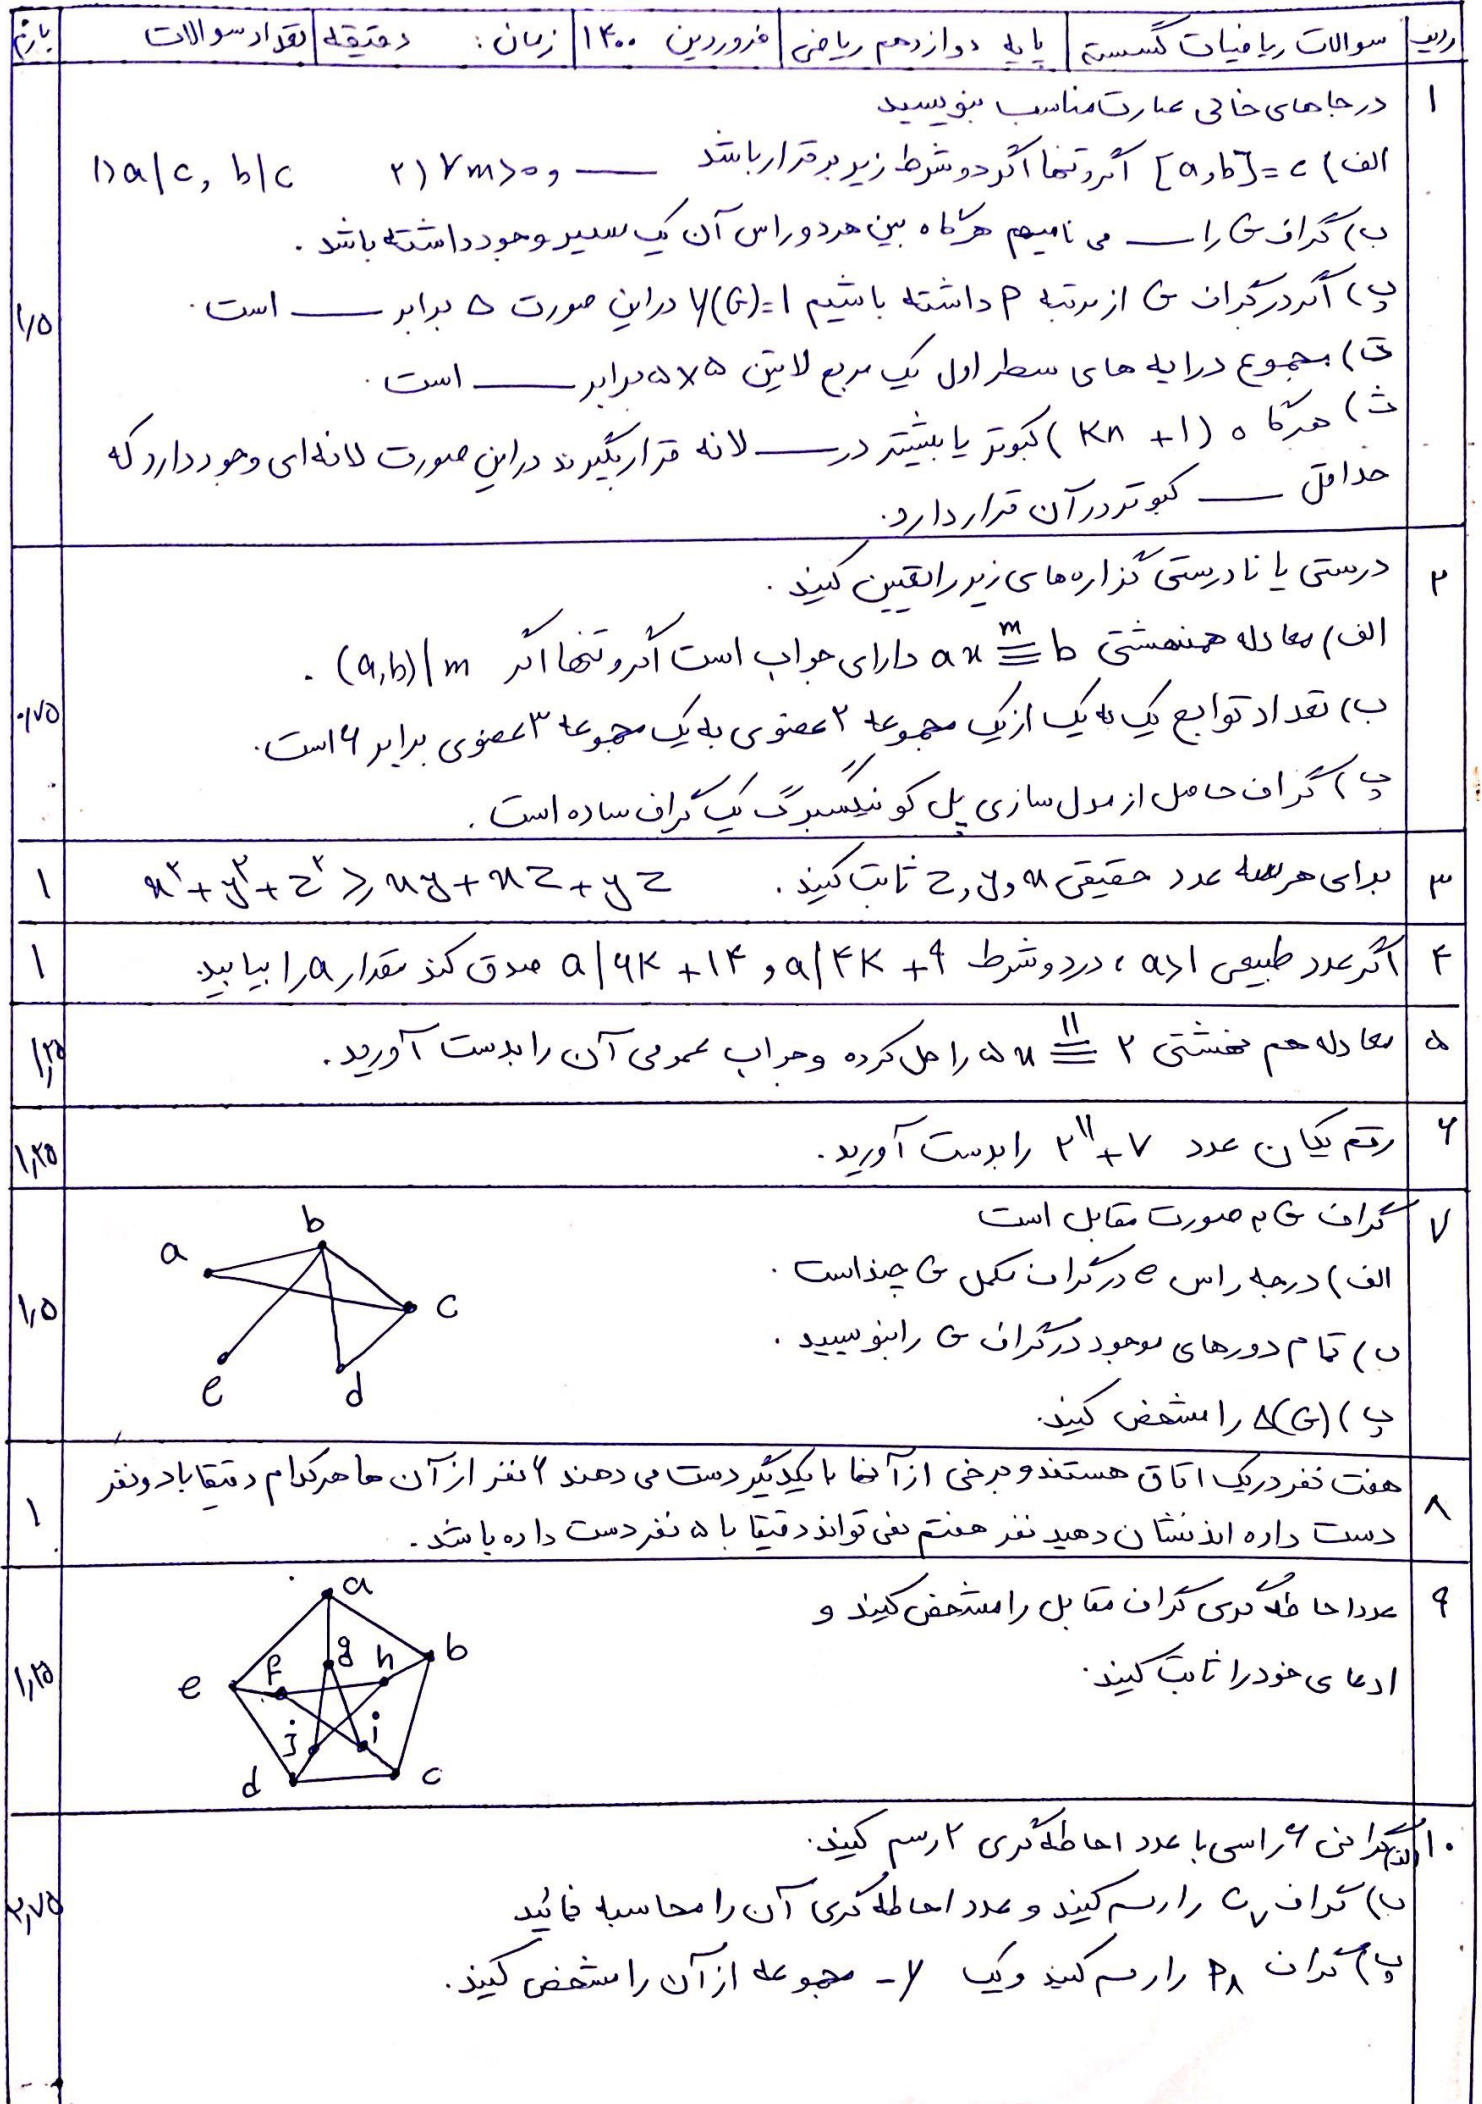 ردیف سوالات ریاضیات گسسته پایه دوازدهم ریاضی فروردین ۱۴۰۰ زمان: دقیقه تعداد سوالات بارم
۱ در جاهای خالی عبارت مناسب بنویسید
الف) [a,b]=c اگر و تنها اگر دو شرط زیر برقرار باشد ۱) a|c, b|c ۲) ∀m>0, ___
ب) گراف G را ___ می نامیم هرگاه بین هر دو راس آن یک مسیر وجود داشته باشد.
پ) اگر در گراف G از مرتبه P داشته باشیم γ(G)=1 در این صورت Δ برابر ___ است.
ت) مجموع درایه های سطر اول یک مربع لاتین ۵×۵ برابر ___ است.
ث) هرگاه (kn+1) کبوتر یا بیشتر در ___ لانه قرار بگیرند در این صورت لانه‌ای وجود دارد که
حداقل ___ کبوتر در آن قرار دارد.
۱/۵
۲ درستی یا نادرستی گزاره های زیر را تعیین کنید.
الف) معادله همنهشتی ax ≡ᵐ b دارای جواب است اگر و تنها اگر (a,b)|m.
ب) تعداد توابع یک به یک از یک مجموعه ۲ عضوی به یک مجموعه ۳ عضوی برابر ۶ است.
پ) گراف حاصل از مدل سازی پل کونیگسبرگ یک گراف ساده است.
۰/۷۵
۳ برای هر سه عدد حقیقی x و y و z ثابت کنید. x²+y²+z² ≥ xy+xz+yz ۱
۴ اگر عدد طبیعی a>1، در دو شرط a|۴k+۹ و a|۶k+۱۴ صدق کند مقدار a را بیابید ۱
۵ معادله هم نهشتی ۵x ≡¹¹ ۲ را حل کرده و جواب عمومی آن را بدست آورید. ۱٫۲۵
۶ رقم یکان عدد ۲¹¹+۷ را بدست آورید. ۱٫۲۵
۷ گراف G به صورت مقابل است
الف) درجه راس e در گراف مکمل G چند است.
ب) تمام دورهای موجود در گراف G را بنویسید.
پ) Δ(G) را مشخص کنید.
a b c d e
۱٫۵
۸ هفت نفر در یک اتاق هستند و برخی از آنها با یکدیگر دست می دهند ۶ نفر از آن ها هر کدام دقیقا با دو نفر
دست داده اند نشان دهید نفر هفتم نمی تواند دقیقا با ۵ نفر دست داده باشد.
۱
۹ عدد احاطه گری گراف مقابل را مشخص کنید و
ادعای خود را ثابت کنید.
a b c d e f g h i j
۱٫۲۵
۱۰ الف) گرافی ۶ راسی با عدد احاطه گری ۲ رسم کنید.
ب) گراف C₇ را رسم کنید و عدد احاطه گری آن را محاسبه نمائید
پ) گراف P₈ را رسم کنید و یک γ- مجموعه از آن را مشخص کنید.